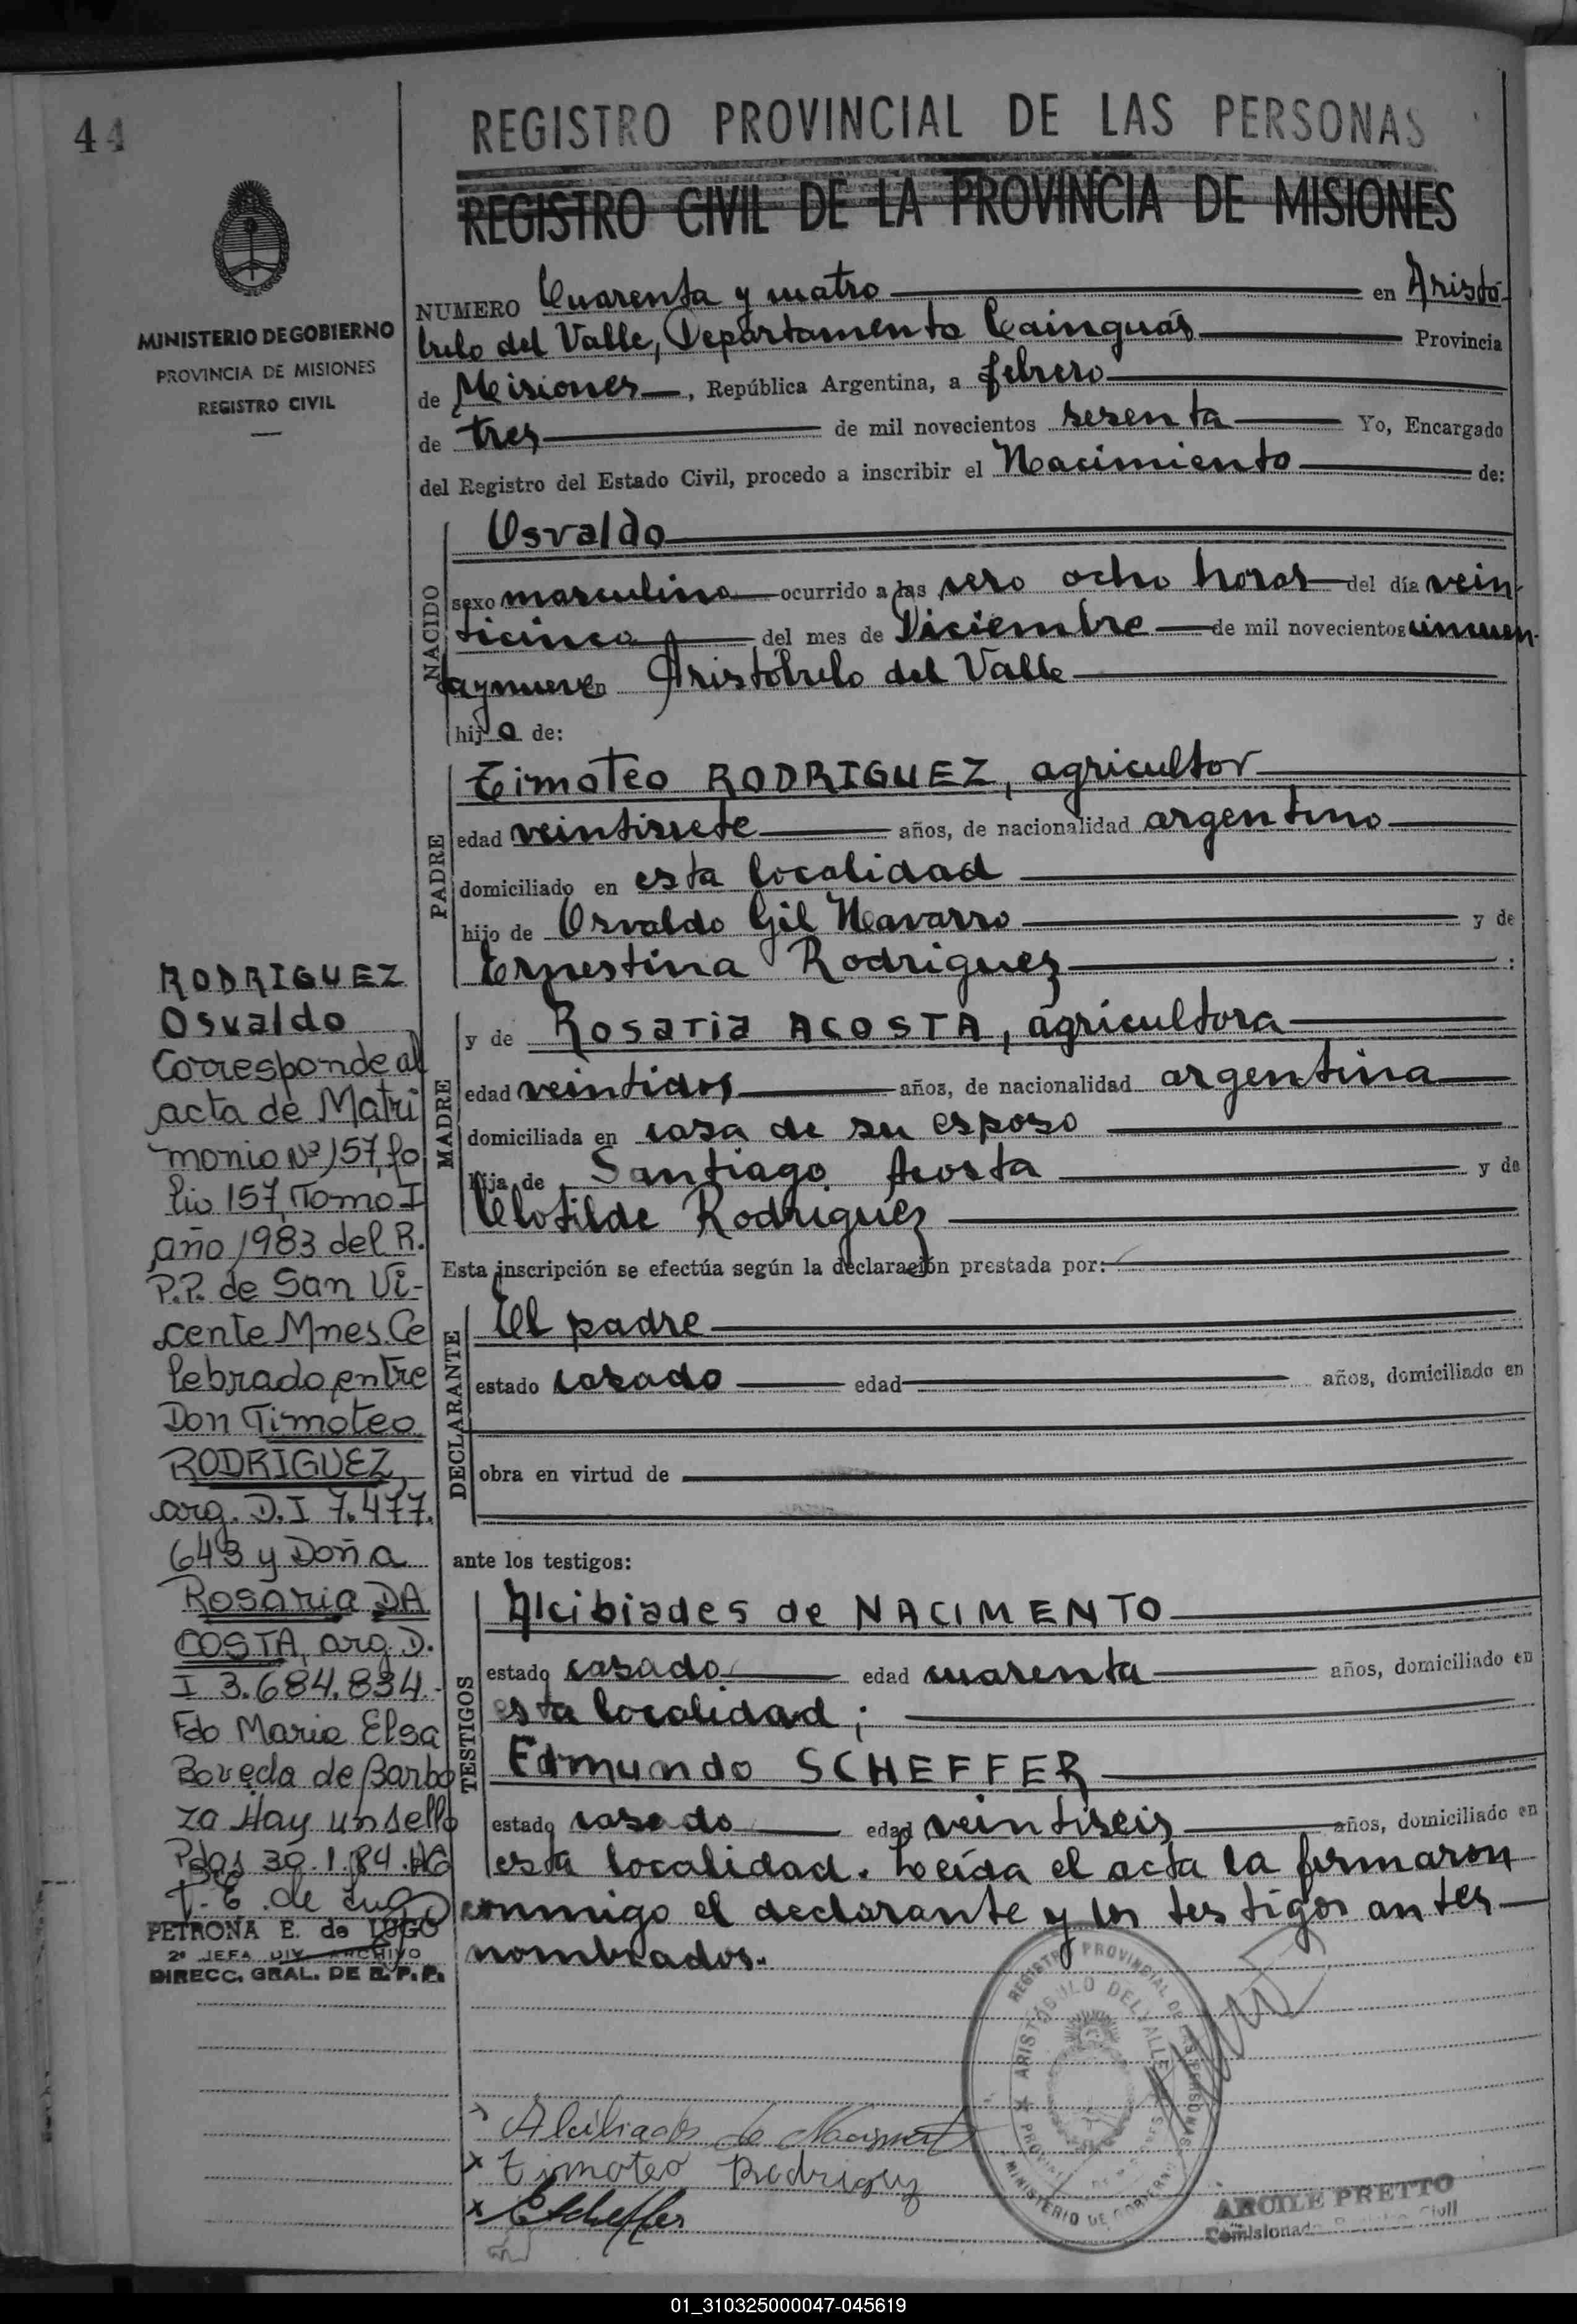 44
REGISTRO PROVINCIAL DE LAS PERSONAS
REGISTRO CIVIL DE LA PROVINCIA DE MISIONES
MINISTERIO DE GOBIERNO
PROVINCIA DE MISIONES
REGISTRO CIVIL
NUMERO Cuarenta y cuatro en Aristó-
bulo del Valle, Departamento Cainguás Provincia
de Misiones, República Argentina, a febrero
de tres de mil novecientos sesenta Yo, Encargado
del Registro del Estado Civil, procedo a inscribir el Nacimiento de:
NACIDO
Osvaldo
sexo masculino ocurrido a las sero ocho horas del día vein
ticinco del mes de Diciembre de mil novecientos cincuen-
taynueve en Aristóbulo del Valle
hijo de:
PADRE
Timoteo RODRIGUEZ, agricultor
edad veintisiete años, de nacionalidad argentino
domiciliado en esta localidad
hijo de Osvaldo Gil Navarro y de
Ernestina Rodriguez:
MADRE
y de Rosaria ACOSTA, agricultora
edad veintidos años, de nacionalidad argentina
domiciliada en casa de su esposo
hija de Santiago Acosta y de
Clotilde Rodriguez
Esta inscripción se efectúa según la declaración prestada por:
DECLARANTE
El padre
estado casado edad años, domiciliado en
obra en virtud de
ante los testigos:
TESTIGOS
Alcibiades de NACIMENTO
estado casado edad cuarenta años, domiciliado en
esta localidad;
Edmundo SCHEFFER
estado casado edad veintiseis años, domiciliado en
esta localidad. Leída el acta la firmaron
conmigo el declarante y los testigos antes
nombrados.
RODRIGUEZ
Osvaldo
Corresponde al
acta de Matri
monio Nº 157, fo
lio 157, Tomo I
año 1983 del R.
P.P. de San Vi-
cente Mnes. Ce
lebrado entre
Don Timoteo
RODRIGUEZ,
arg. D.I 7.477.
643 y Doña
Rosaria DA
COSTA, arg. D.
I 3.684.834.-
Fdo Maria Elsa
Boveda de Barbo
za Hay un sello
Pdas 30.1.84.
P. E. de Lugo
PETRONA E. de LUGO
2º JEFA DIV. ARCHIVO
DIRECC. GRAL. DE R.P.P.
REGISTRO PROVINCIAL DE LAS PERSONAS
ARISTÓBULO DEL VALLE
MINISTERIO DE GOBIERNO
x Timoteo Rodriguez
x EScheffer
ARCILE PRETTO
01_310325000047-045619